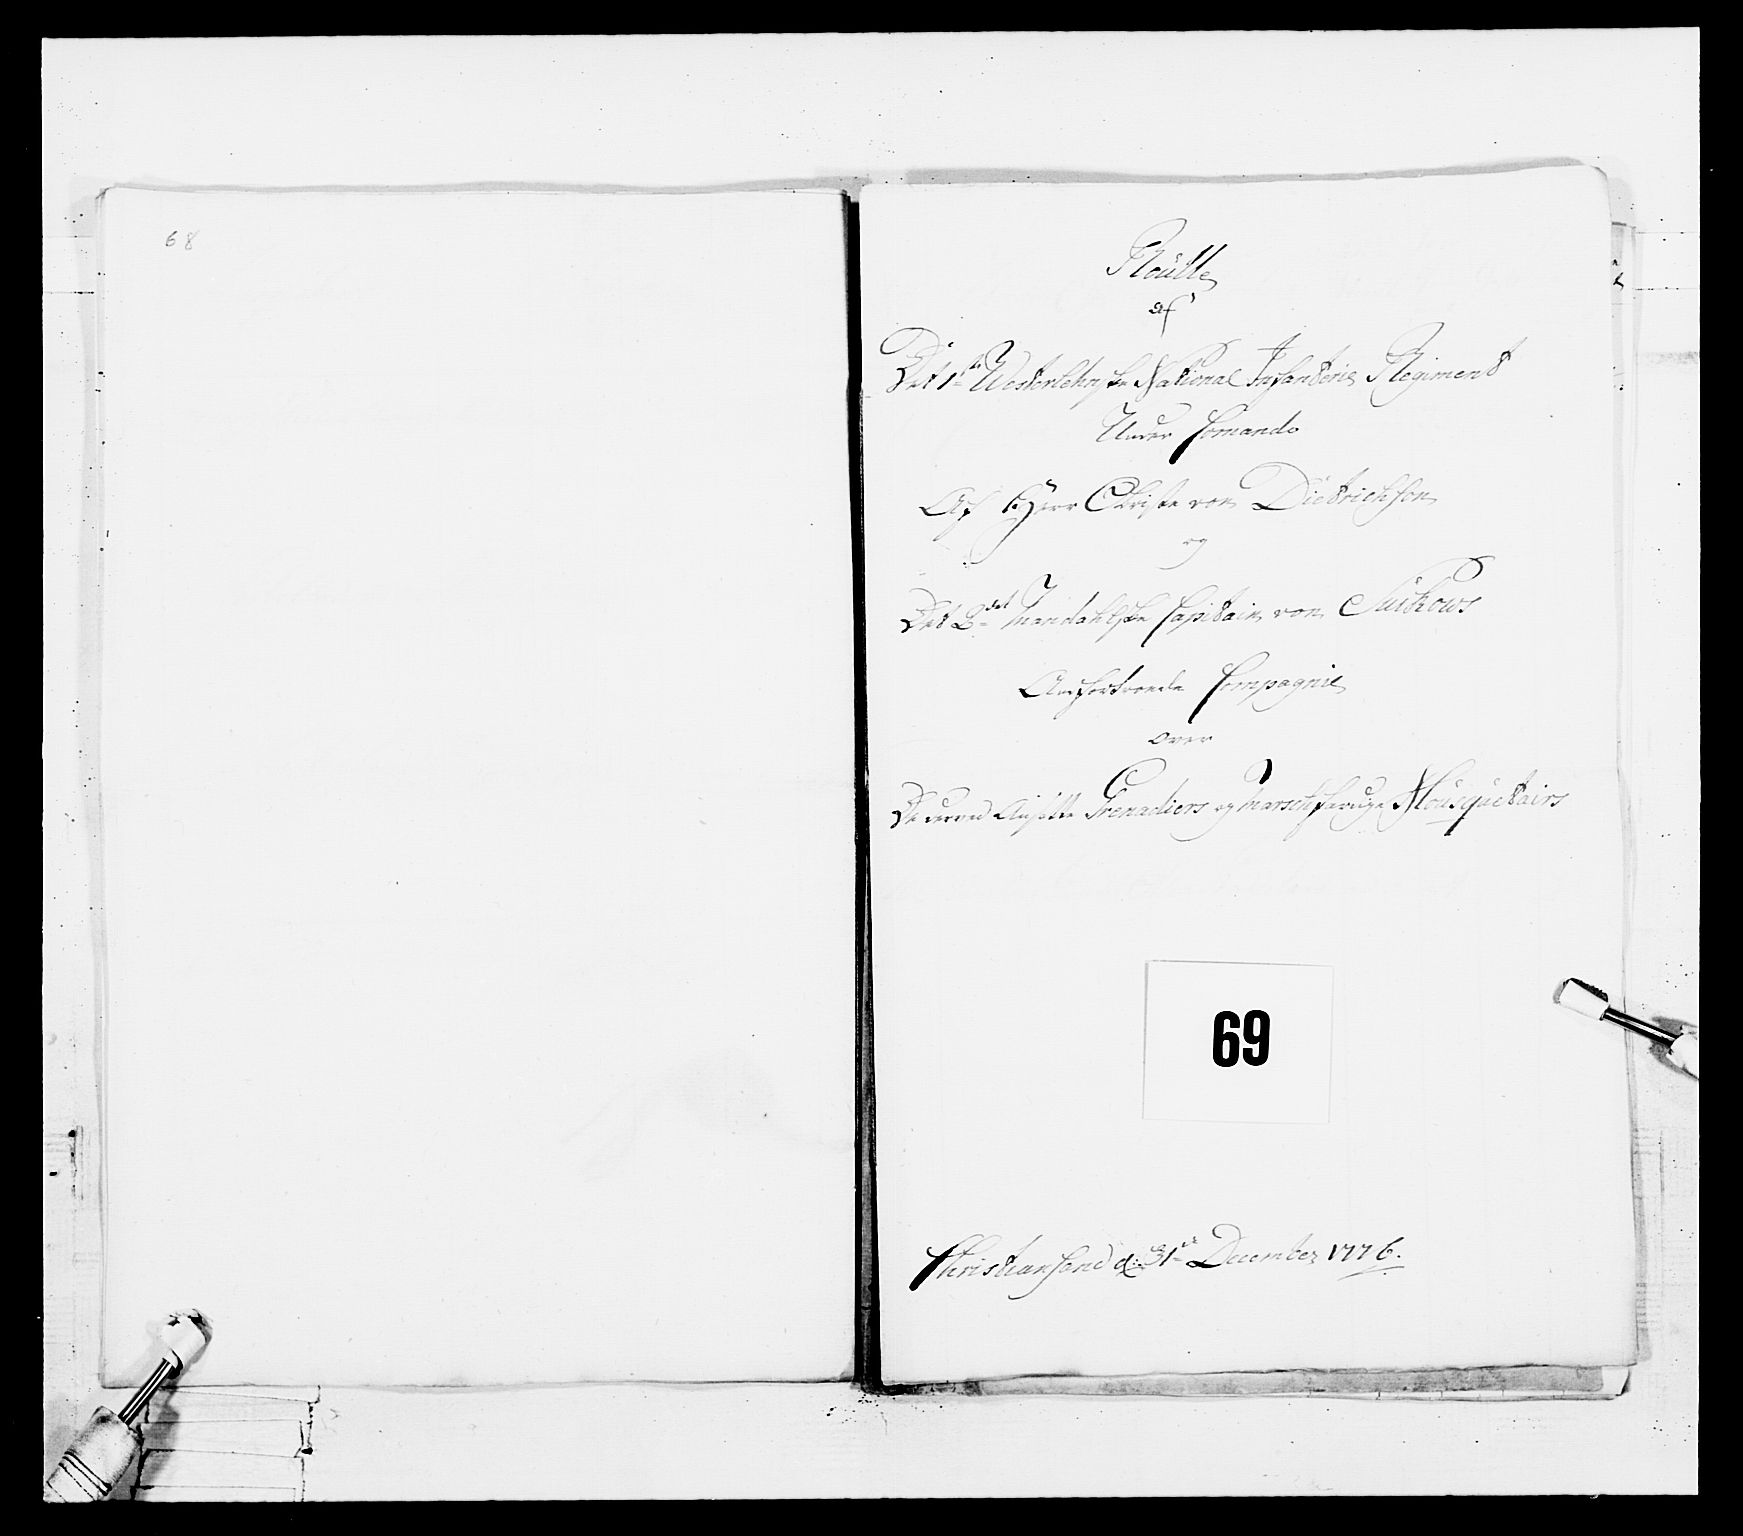 68
Roulle
af
Det 1ste Westerlehnske National Infanterie Regiment
Under Comando
Af Herr Obriste von Dietrichson
og
Det 2det Mandahlske Capitain von Suckows
Anfortroede Compagnie
over
De derved Ansatte Grenadiers og Marschfærdige Mousquetairs
69
Christiansand d: 31te December 1776.